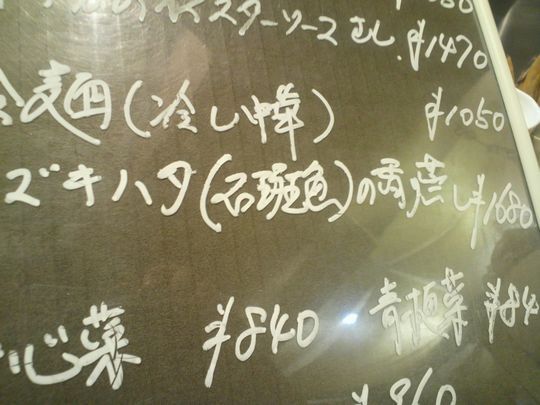 スターソース ¥1470
麺(冷し中華) ¥1050
ズキハタ(石斑魚)の蒸し ¥1680
心菜 ¥840 青梗菜 ¥84
¥860